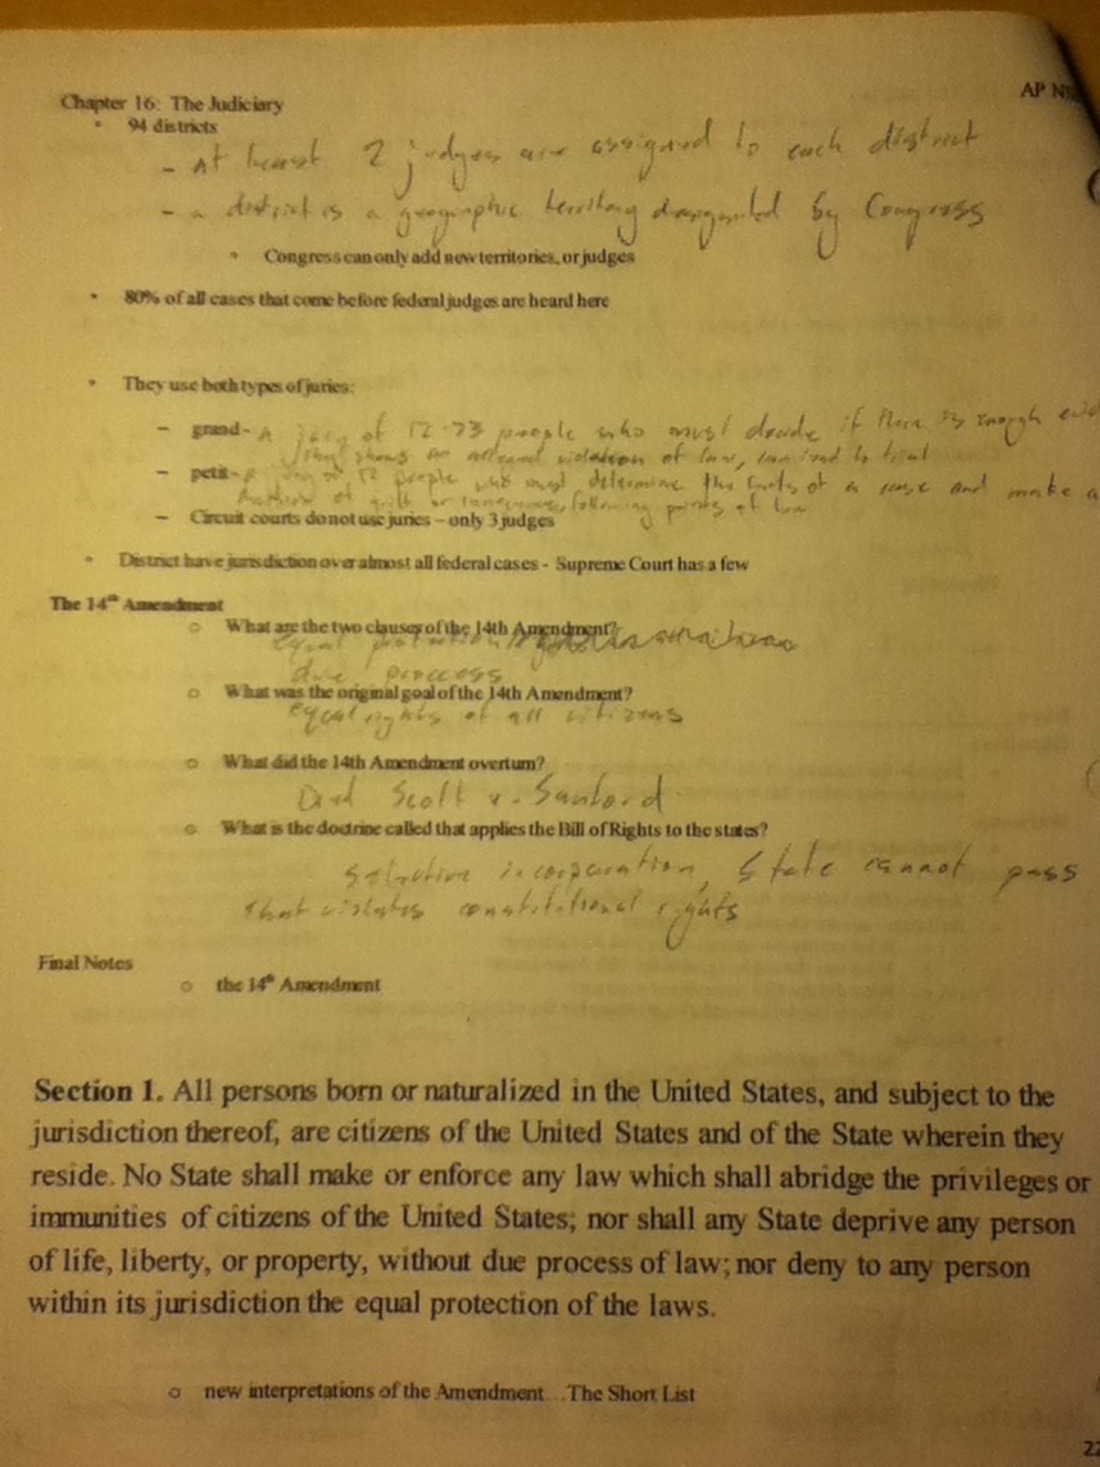 Chapter 16: The Judiciary
AP
• 94 districts
- At least 2 judges are assigned to each district
- a district is a geographic territory designated by Congress
• Congress can only add new territories, or judges
• 80% of all cases that come before federal judges are heard here
• They use both types of juries:
– grand - A jury of 12-23 people who must decide if there is enough
shows an alleged violation of law, to trial
– petit - A jury of 12 people who must determine the facts of a case and make a
of guilt or innocence, following points of law
– Circuit courts do not use juries – only 3 judges
• District have jurisdiction over almost all federal cases - Supreme Court has a few
The 14th Amendment
o What are the two clauses of the 14th Amendment?
equal protection
due process
o What was the original goal of the 14th Amendment?
equal rights of all citizens
o What did the 14th Amendment overturn?
Dred Scott v. Sanford
o What is the doctrine called that applies the Bill of Rights to the states?
selective incorporation, State cannot pass
that violates constitutional rights
Final Notes
o the 14th Amendment
Section 1. All persons born or naturalized in the United States, and subject to the
jurisdiction thereof, are citizens of the United States and of the State wherein they
reside. No State shall make or enforce any law which shall abridge the privileges or
immunities of citizens of the United States; nor shall any State deprive any person
of life, liberty, or property, without due process of law; nor deny to any person
within its jurisdiction the equal protection of the laws.
o new interpretations of the Amendment...The Short List
22